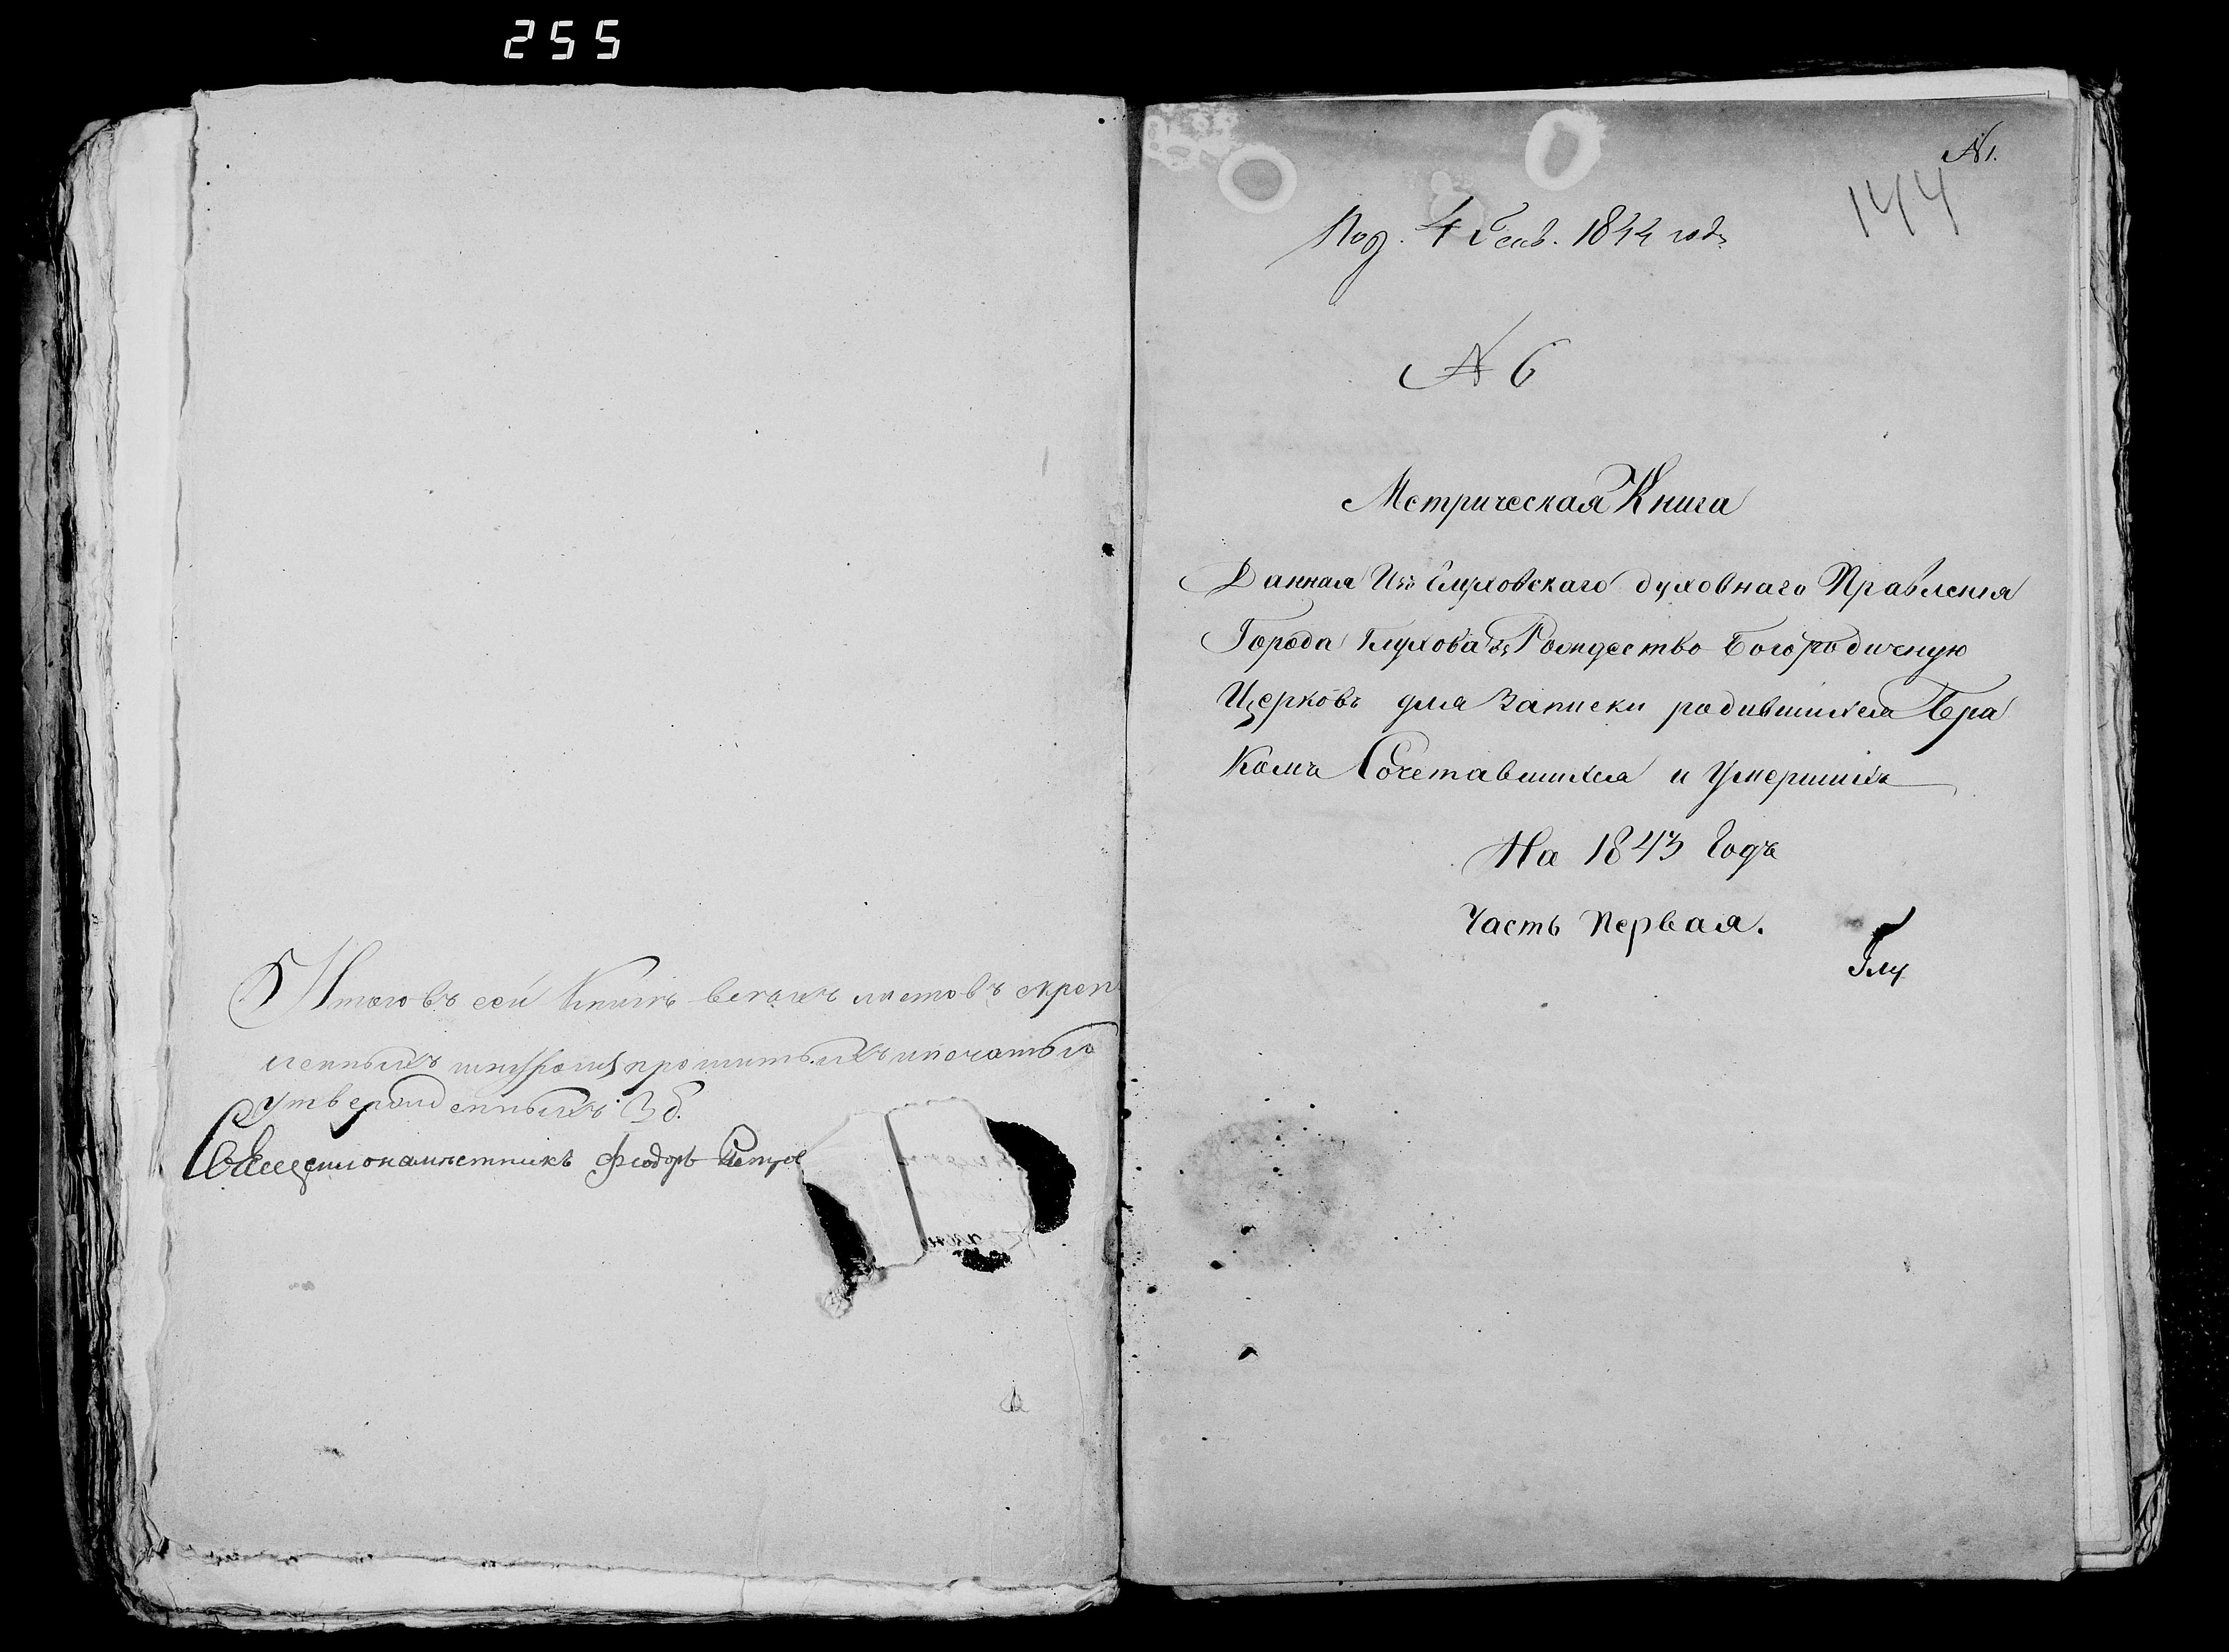 255
Итого въ сей Книгѣ всехъ листовъ скреп
ленныхъ шнуромъ прошитыхъ и печатью
утвержденныхъ 36.
Священнонамѣстникъ Феодоръ
№ 1.
144
Под. 4 Генв. 1844 года
№ 6
Метрическая Книга
Данная Изъ Глуховскаго духовнаго Правления
Города Глухова въ Рождество Богородичную
Церковь для Записки родившихся Бра
комъ Сочетавшихся и Умершихъ
На 1843 Годъ
Часть Первая.
Глу